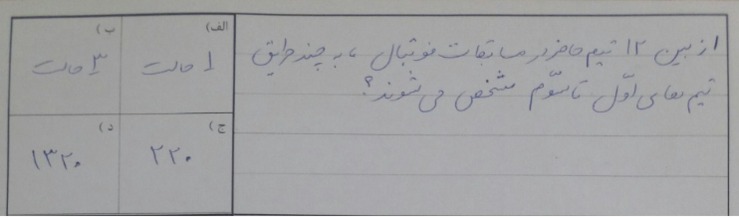 از بین ۱۲ تیم حاضر در مسابقات فوتبال ، به چند طریق
تیم های اوّل تا سوّم مشخص می شوند؟
الف) ۱ حالت
ب) ۳ حالت
ج) ۲۲۰
د) ۱۳۲۰